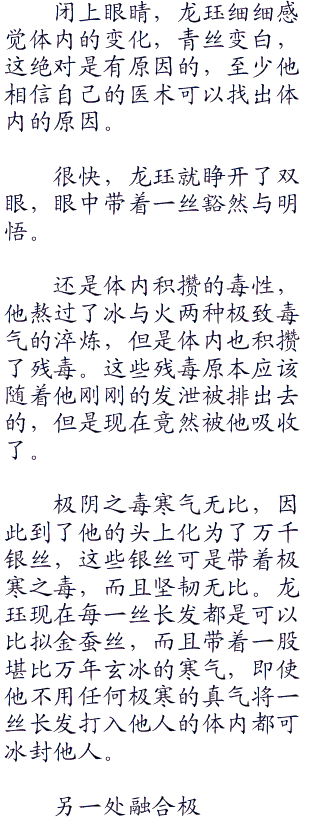 闭上眼睛，龙珏细细感
觉体内的变化，青丝变白，
这绝对是有原因的，至少他
相信自己的医术可以找出体
内的原因。
很快，龙珏就睁开了双
眼，眼中带着一丝豁然与明
悟。
还是体内积攒的毒性，
他熬过了冰与火两种极致毒
气的淬炼，但是体内也积攒
了残毒。这些残毒原本应该
随着他刚刚的发泄被排出去
的，但是现在竟然被他吸收
了。
极阴之毒寒气无比，因
此到了他的头上化为了万千
银丝，这些银丝可是带着极
寒之毒，而且坚韧无比。龙
珏现在每一丝长发都是可以
比拟金蚕丝，而且带着一股
堪比万年玄冰的寒气，即使
他不用任何极寒的真气将一
丝长发打入他人的体内都可
冰封他人。
另一处融合极